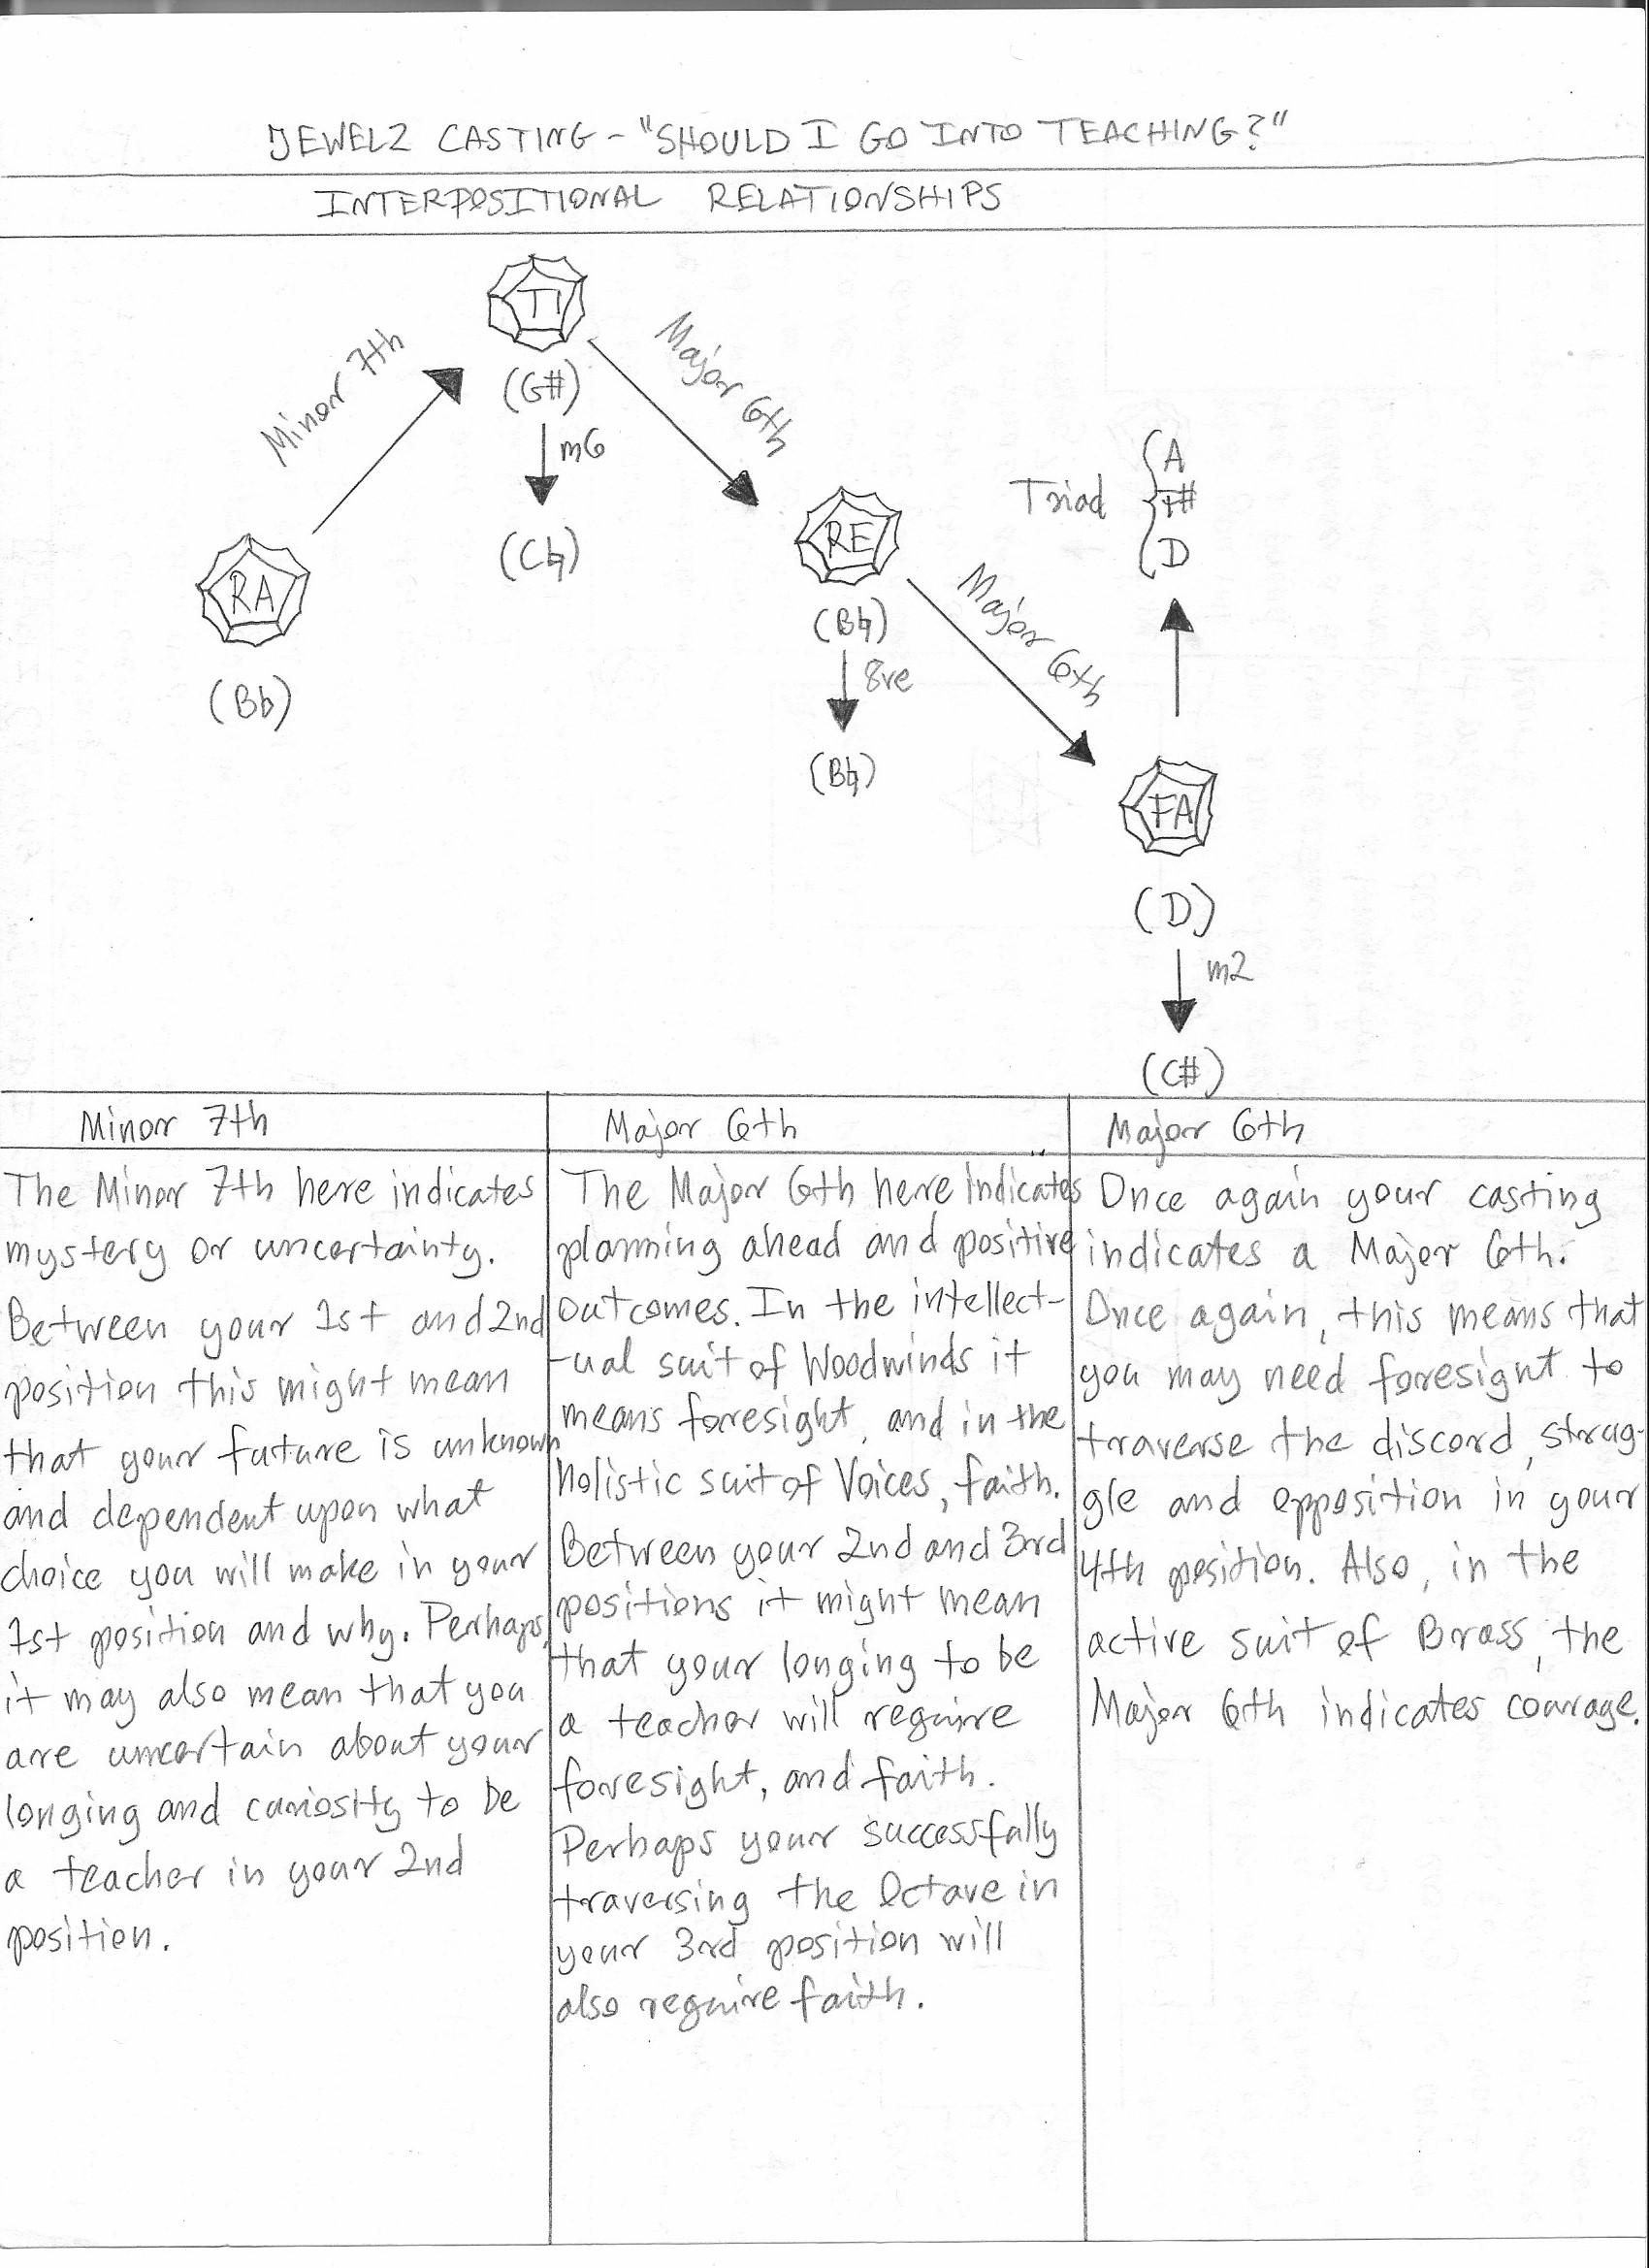 JEWELZ CASTING - "SHOULD I GO INTO TEACHING?"
INTERPOSITIONAL RELATIONSHIPS
TI
(G#)
m6
(C♮)
Minor 7th
RA
(Bb)
Major 6th
RE
(B♮)
8ve
(B♮)
Major 6th
Triad
A
F#
D
FA
(D)
m2
(C#)
Minor 7th
The Minor 7th here indicates
mystery or uncertainty.
Between your 1st and 2nd
position this might mean
that your future is unknown
and dependent upon what
choice you will make in your
1st position and why. Perhaps,
it may also mean that you
are uncertain about your
longing and curiosity to be
a teacher in your 2nd
position.
Major 6th
The Major 6th here indicates
planning ahead and positive
outcomes. In the intellect-
-ual suit of Woodwinds it
means foresight, and in the
holistic suit of Voices, faith.
Between your 2nd and 3rd
positions it might mean
that your longing to be
a teacher will require
foresight, and faith.
Perhaps your successfully
traversing the Octave in
your 3rd position will
also require faith.
Major 6th
Once again your casting
indicates a Major 6th.
Once again, this means that
you may need foresight to
traverse the discord, strug-
gle and opposition in your
4th position. Also, in the
active suit of Brass, the
Major 6th indicates courage.